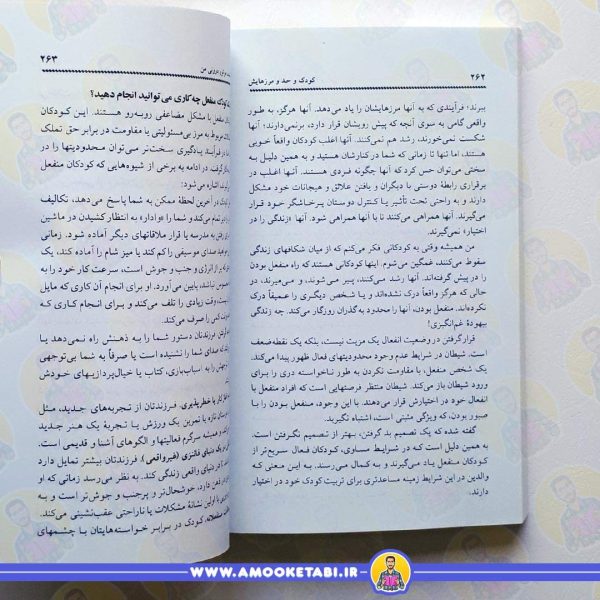 ۲۶۲
کودک و حد و مرزهایش
ببرند؛ فرآیندی که به آنها مرزهایشان را یاد می‌دهد. آنها هرگز، به طور
واقعی گامی به سوی آنچه که پیش رویشان قرار دارد، برنمی‌دارند؛ آنها
شکست نمی‌خورند، رشد هم نمی‌کنند. آنها اغلب کودکان واقعاً خوبی
هستند، اما تنها تا زمانی که شما در کنارشان هستید و به همین دلیل به
سختی می‌توان حس کرد که آنها چگونه فردی هستند. آنها اغلب در
برقراری رابطهٔ دوستی با دیگران و یافتن علائق و هیجانات خود مشکل
دارند و به راحتی تحت تأثیر یا کنترل دوستان پرخاشگر خود قرار
می‌گیرند. آنها همراهی می‌کنند تا با آنها همراهی شود. آنها «زندگی را در
اختیار» نمی‌گیرند.
من همیشه وقتی به کودکانی فکر می‌کنم که از میان شکافهای زندگی
سقوط می‌کنند، غمگین می‌شوم. اینها کودکانی هستند که راه منفعل بودن
را در پیش گرفته‌اند. آنها رشد می‌کنند، پیر می‌شوند، و می‌میرند، در
حالی که هرگز واقعاً درک نشده‌اند و یا شخص دیگری را عمیقاً درک
نکرده‌اند. منفعل بودن، آنها را محدود به گذران روزگار می‌کند. چه زندگی
بیهودهٔ غم‌انگیزی!
قرار گرفتن در وضعیت انفعال یک مزیت نیست، بلکه یک نقطه‌ضعف
است. شیطان در شرایط عدم وجود محدودیتهای فعال ظهور پیدا می‌کند.
یک شخص منفعل، با مقاومت نکردن به طور ناخواسته دری را برای
ورود شیطان باز می‌کند. شیطان منتظر فرصتهایی است که افراد منفعل با
انفعال خود در اختیارش قرار می‌دهند. با این وجود، منفعل بودن را با
صبور بودن، که ویژگی مثبتی است، اشتباه نگیرید.
گفته شده که یک تصمیم بد گرفتن، بهتر از تصمیم نگرفتن است.
به همین دلیل است که در شرایط مساوی، کودکان فعال سریع‌تر از
کودکان منفعل یاد می‌گیرند و به کمال می‌رسند. به این معنی که
والدین در این شرایط زمینه مساعدتری برای تربیت کودک خود در اختیار
دارند.
۲۶۳
کودک منفعل چه کاری می‌توانید انجام دهید؟
منفعل با مشکل مضاعفی روبه‌رو هستند. این کودکان
مربوط به مرز بی‌مسئولیتی یا مقاومت در برابر حق تملک
در فرآیند یادگیری سخت‌تر می‌توان محدودیتها را در
گرفت. در ادامه به برخی از شیوه‌هایی که کودکان منفعل
اشاره می‌شود:
در آخرین لحظهٔ ممکن به شما پاسخ می‌دهد، تکالیف
تمام می‌کند و شما را «وادار» به انتظار کشیدن در ماشین
رفتن به مدرسه یا قرار ملاقاتهای دیگر آماده شود. زمانی
صدای موسیقی را کم کند یا میز شام را آماده کند، یک
از انرژی و جنب و جوش است، سرعت کار خود را به
پایین می‌آورد. او برای انجام آن کاری که مایل
وقت زیادی را تلف می‌کند و برای انجام کاری که
کمی را صرف می‌کند.
فرزندتان دستور شما را به ذهنش راه نمی‌دهد یا
صدای شما را نشنیده است یا صرفاً به شما بی‌توجهی
به اسباب‌بازی، کتاب یا خیال‌پردازیهای خودش
خطرپذیری. فرزندتان از تجربه‌های جدید، مثل
تازه یا تمرین یک ورزش یا تجربهٔ یک هنر جدید
همیشه سرگرم فعالیتها و الگوهای آشنا و قدیمی است.
دنیای فانتزی (غیرواقعی). فرزندتان بیشتر تمایل دارد
دنیای واقعی زندگی کند. به نظر می‌رسد زمانی که او
در ذهن دارد، خوشحال‌تر و پرجنب و جوش‌تر است و به
اولین نشانهٔ مشکلات یا ناراحتی عقب‌نشینی می‌کند.
کودک در برابر خواسته‌هایتان با چشمهای
WWW.AMOOKETABI.IR